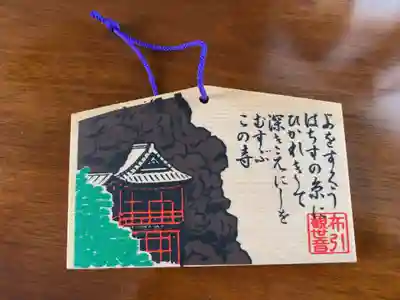 みをすくう
はちすの糸に
ひかれきて
深きえにしを
むすぶ
この寺
布引
観世音